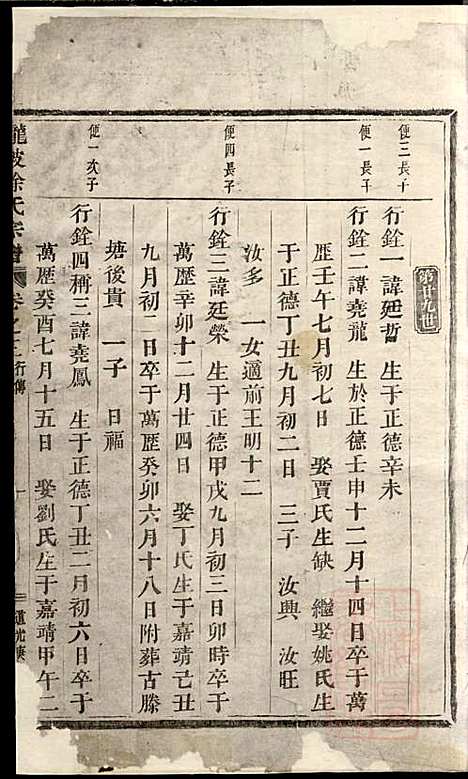 第廿九世
便三長子
行銓一諱廷哲 生于正德辛未
便一長子
行銓二諱堯龍 生於正德壬申十二月十四日卒于萬
歷壬午七月初七日 娶賈氏生缺 繼娶姚氏生
于正德丁丑九月初二日 三子 汝興 汝旺
汝多 一女適前王明十二
便四長子
行銓三諱廷榮 生于正德甲戌九月初三日卯時卒于
萬歷辛卯十二月廿四日 娶丁氏生于嘉靖己丑
九月初二日卒于萬歷癸卯六月十八日附葬古滕
塘後貴 一子 日福
便一次子
行銓四稱三諱堯鳳 生于正德丁丑二月初六日卒于
萬歷癸酉七月十五日 娶劉氏生于嘉靖甲午二
龍坡徐氏宗譜 卷之 行傳
道光庚